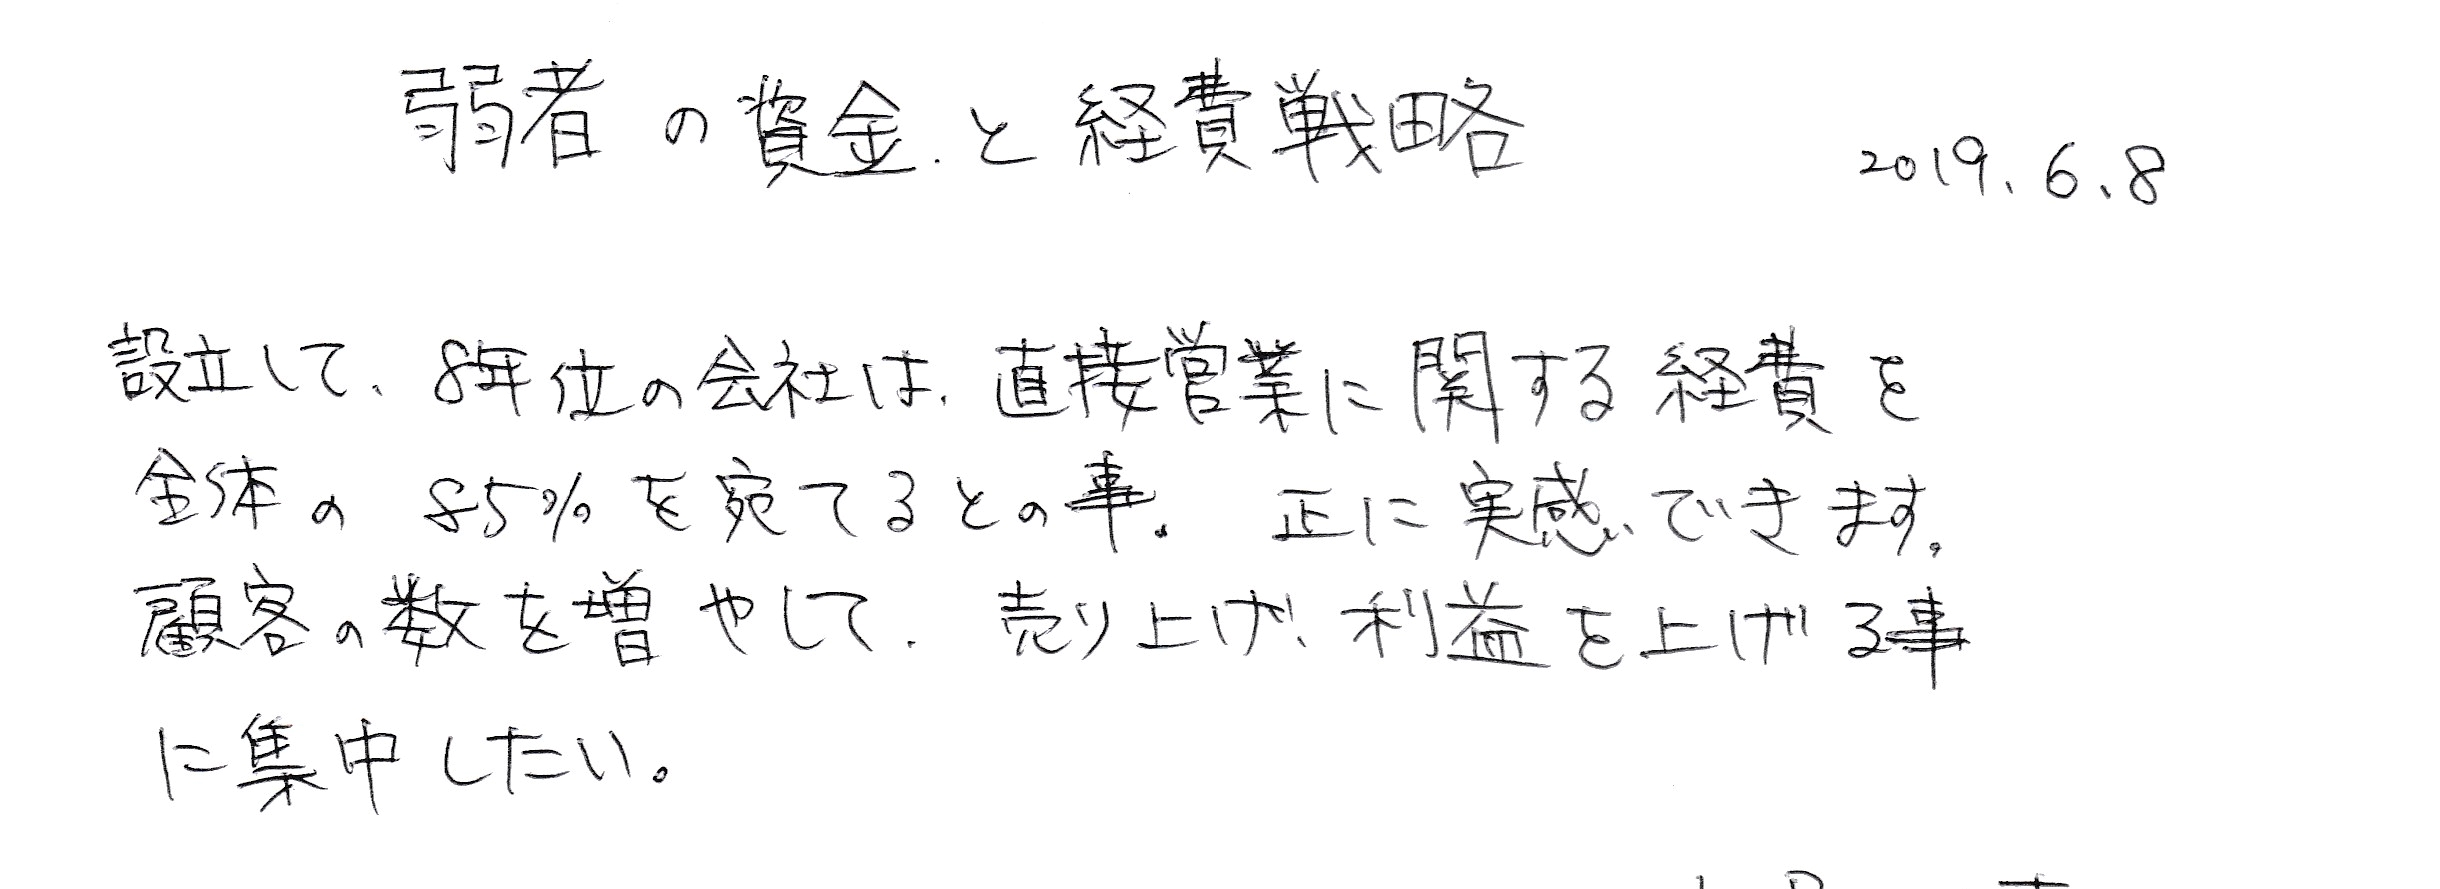 弱者の資金と経費戦略
2019.6.8
設立して、8年位の会社は、直接営業に関する経費を
全体の85%を宛てるとの事。正に実感できます。
顧客の数を増やして、売り上げ、利益を上げる事
に集中したい。